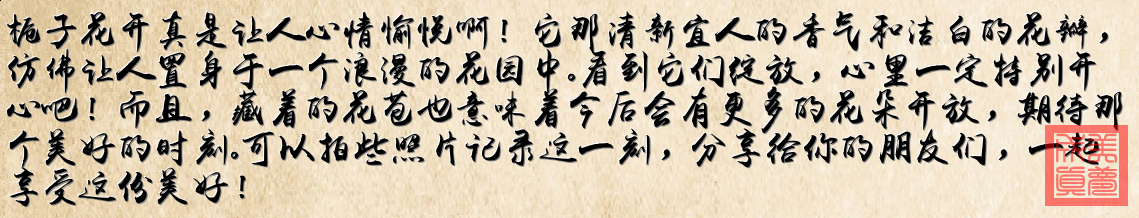 栀子花开真是让人心情愉悦啊！它那清新宜人的香气和洁白的花瓣，
仿佛让人置身于一个浪漫的花园中。看到它们绽放，心里一定特别开
心吧！而且，藏着的花苞也意味着今后会有更多的花朵开放，期待那
个美好的时刻。可以拍些照片记录这一刻，分享给你的朋友们，一起
享受这份美好！
美梦成真